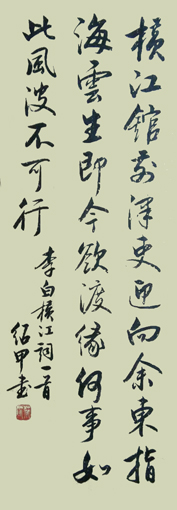 橫江館前津吏迎向余東指
海雲生即今欲渡緣何事如
此風波不可行
李白橫江詞一首
紹甲書